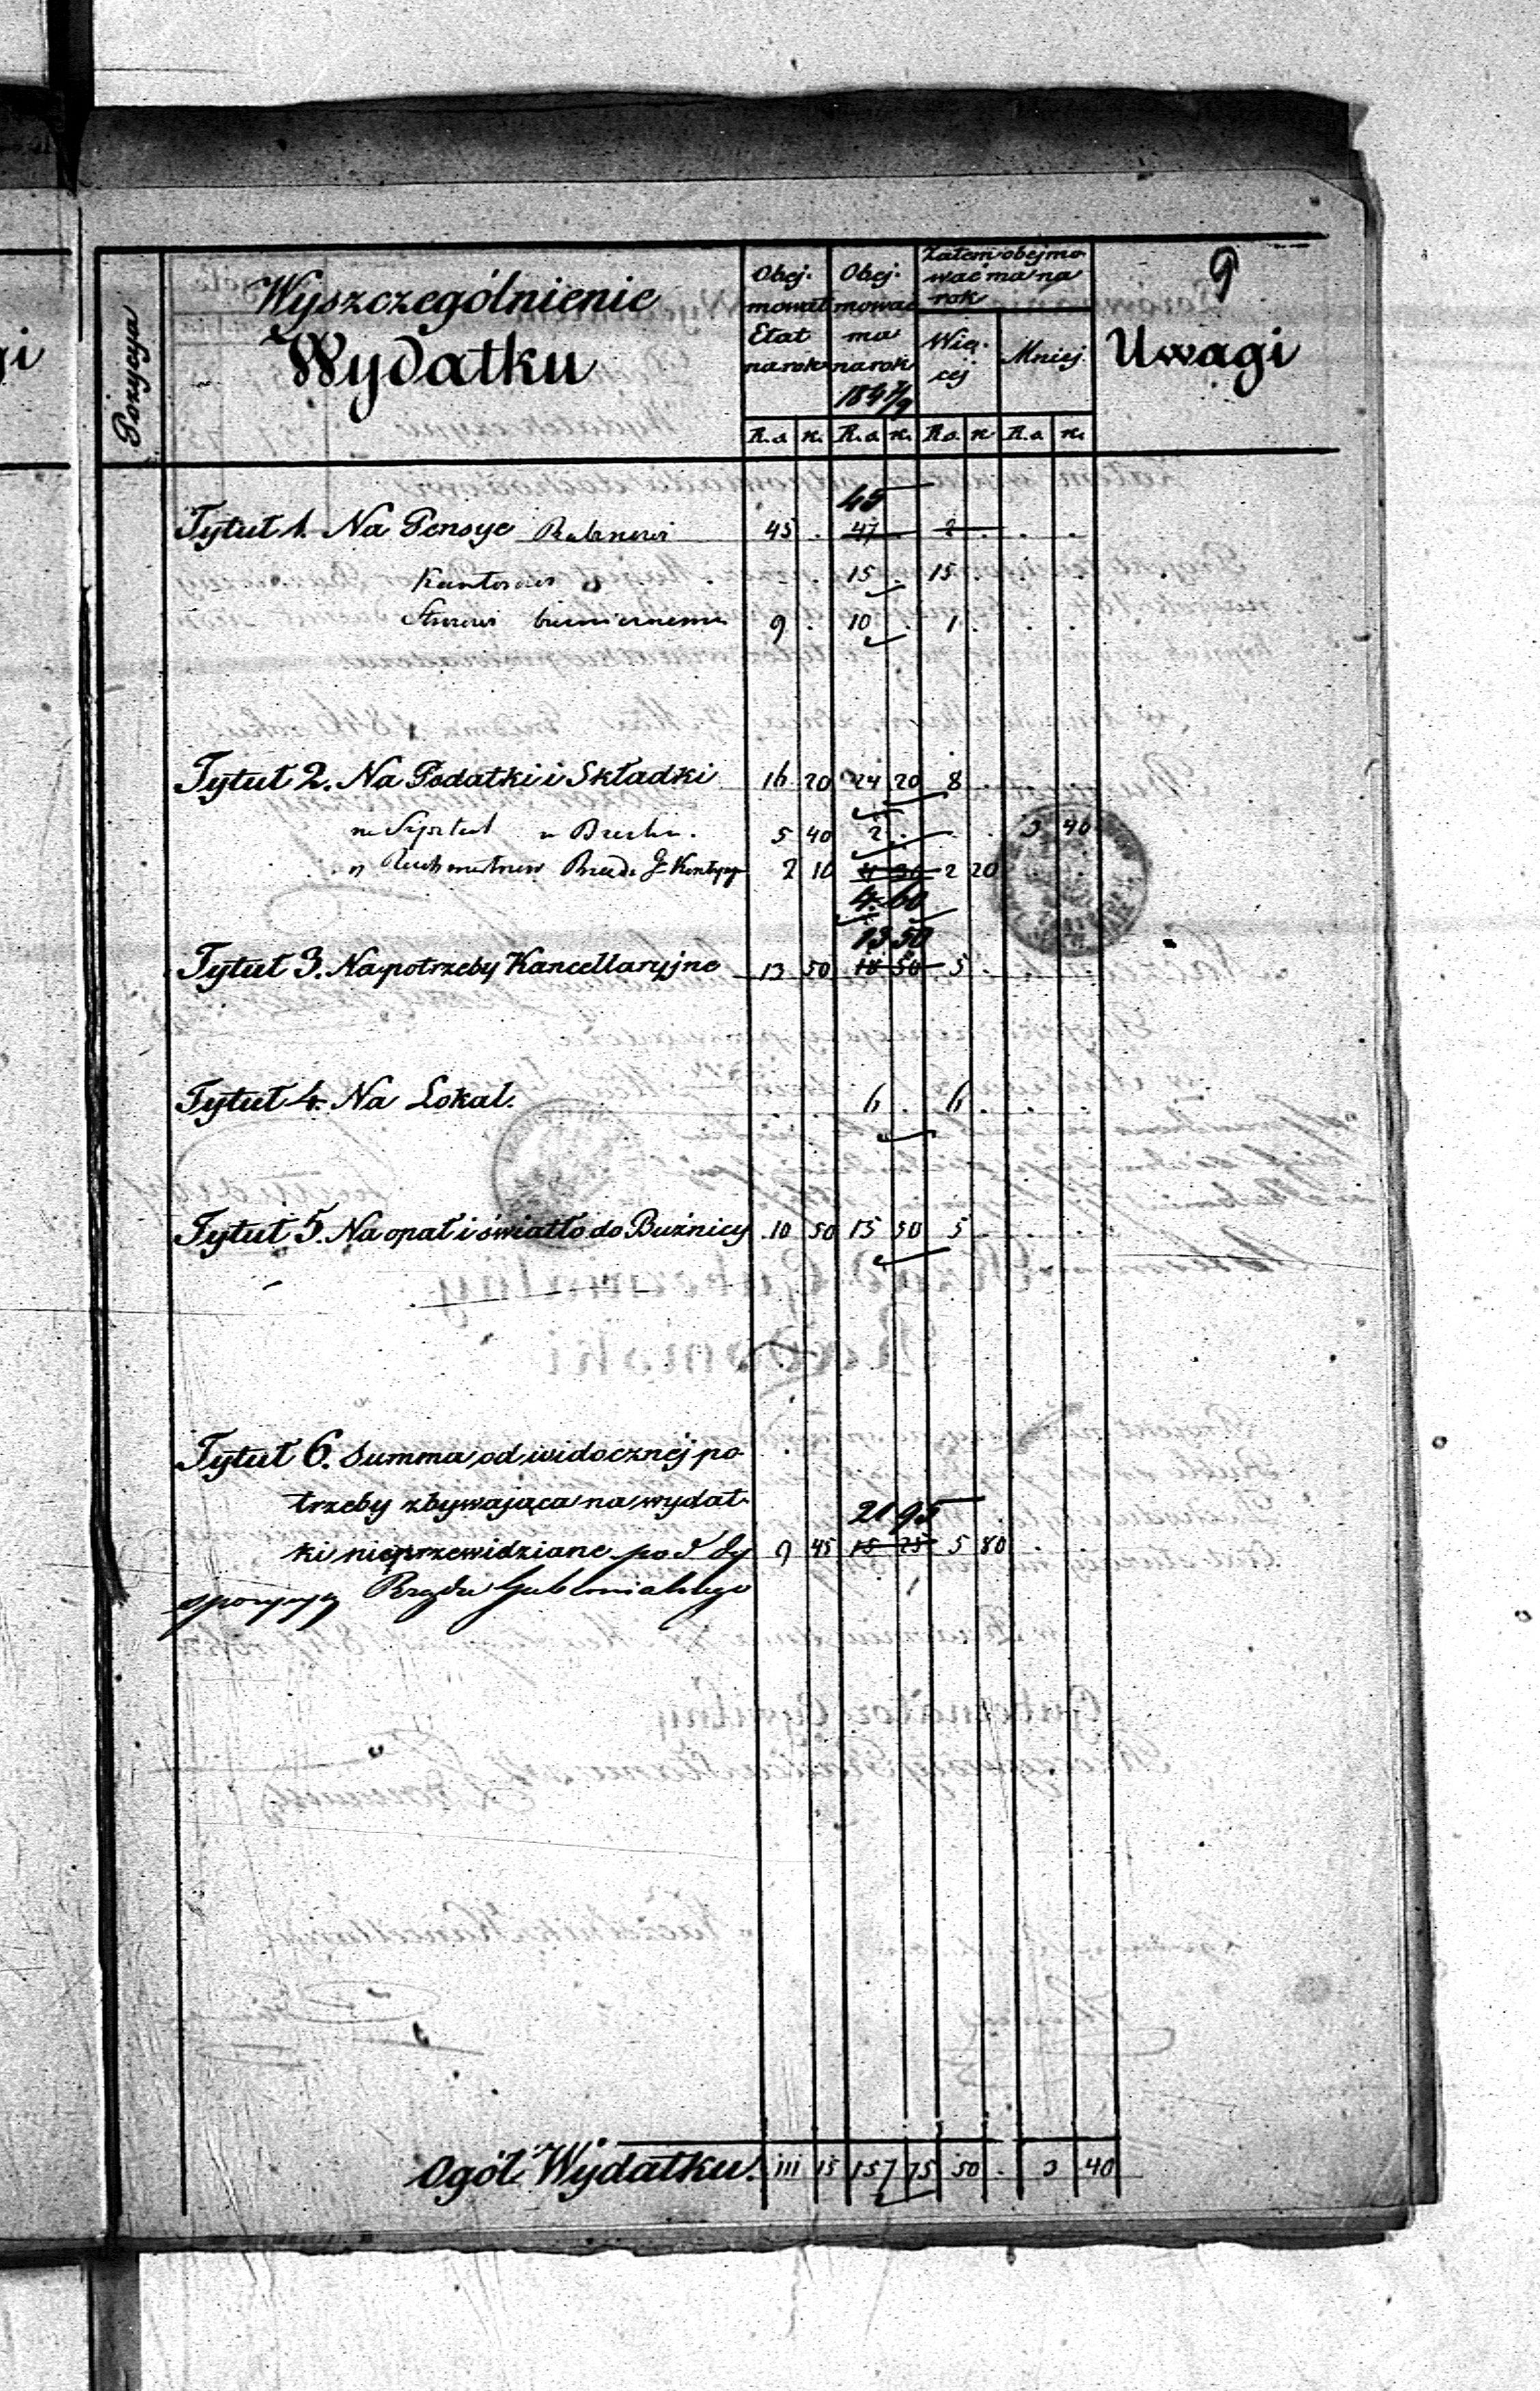 9
Pozycya
Wyszczególnienie
Wydatku
Obej-
mował
Etat
na rok
Obej-
mować
ma
na rok
184 7/9
Zatem obejmo-
wać ma na
rok
Wię-
cej
Mniej
Uwagi
R.s. k. R.s. k. R.s. k. R.s. k.
45
Tytuł 1. Na Pensye Rabinowi 45 . 47 2 . . .
Kantorowi . . 15 . 15 . . .
9 . 10 . 1 . . .
Tytuł 2. Na Podatki i Składki 16 20 24 20 8 . . .
na Szpital w 5 40 2 . . . 3 40
2 10 4 30 2 20
4. 60
13 50
Tytuł 3. Na potrzeby Kancellaryjne 13 50 18 50 5 . . .
Tytuł 4. Na Lokal. . . 6 . 6 . . .
Tytuł 5. Na opał i światło do Bużnicy 10 50 15 50 5 . . .
Tytuł 6. Summa od widocznéj po-
trzeby zbywająca na wydat-
21 95
ki nieprzewidziane pod dy 9 45 15 25 5 80
spozycyą Rządu Gubernialnego
Ogół Wydatku. 111 15 157 75 50 . 3 40